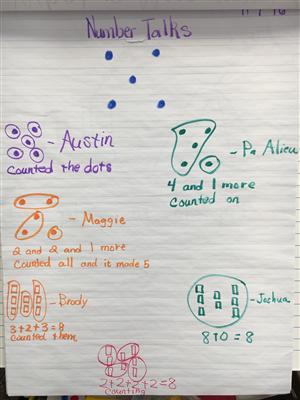 Number Talks
- Austin
counted the dots
- Pa Alieu
4 and 1 more
counted on
- Maggie
2 and 2 and 1 more
counted all and it made 5
- Brody
3+2+3=8
counted them
- Joshua
8+0=8
2+2+2+2=8
counting